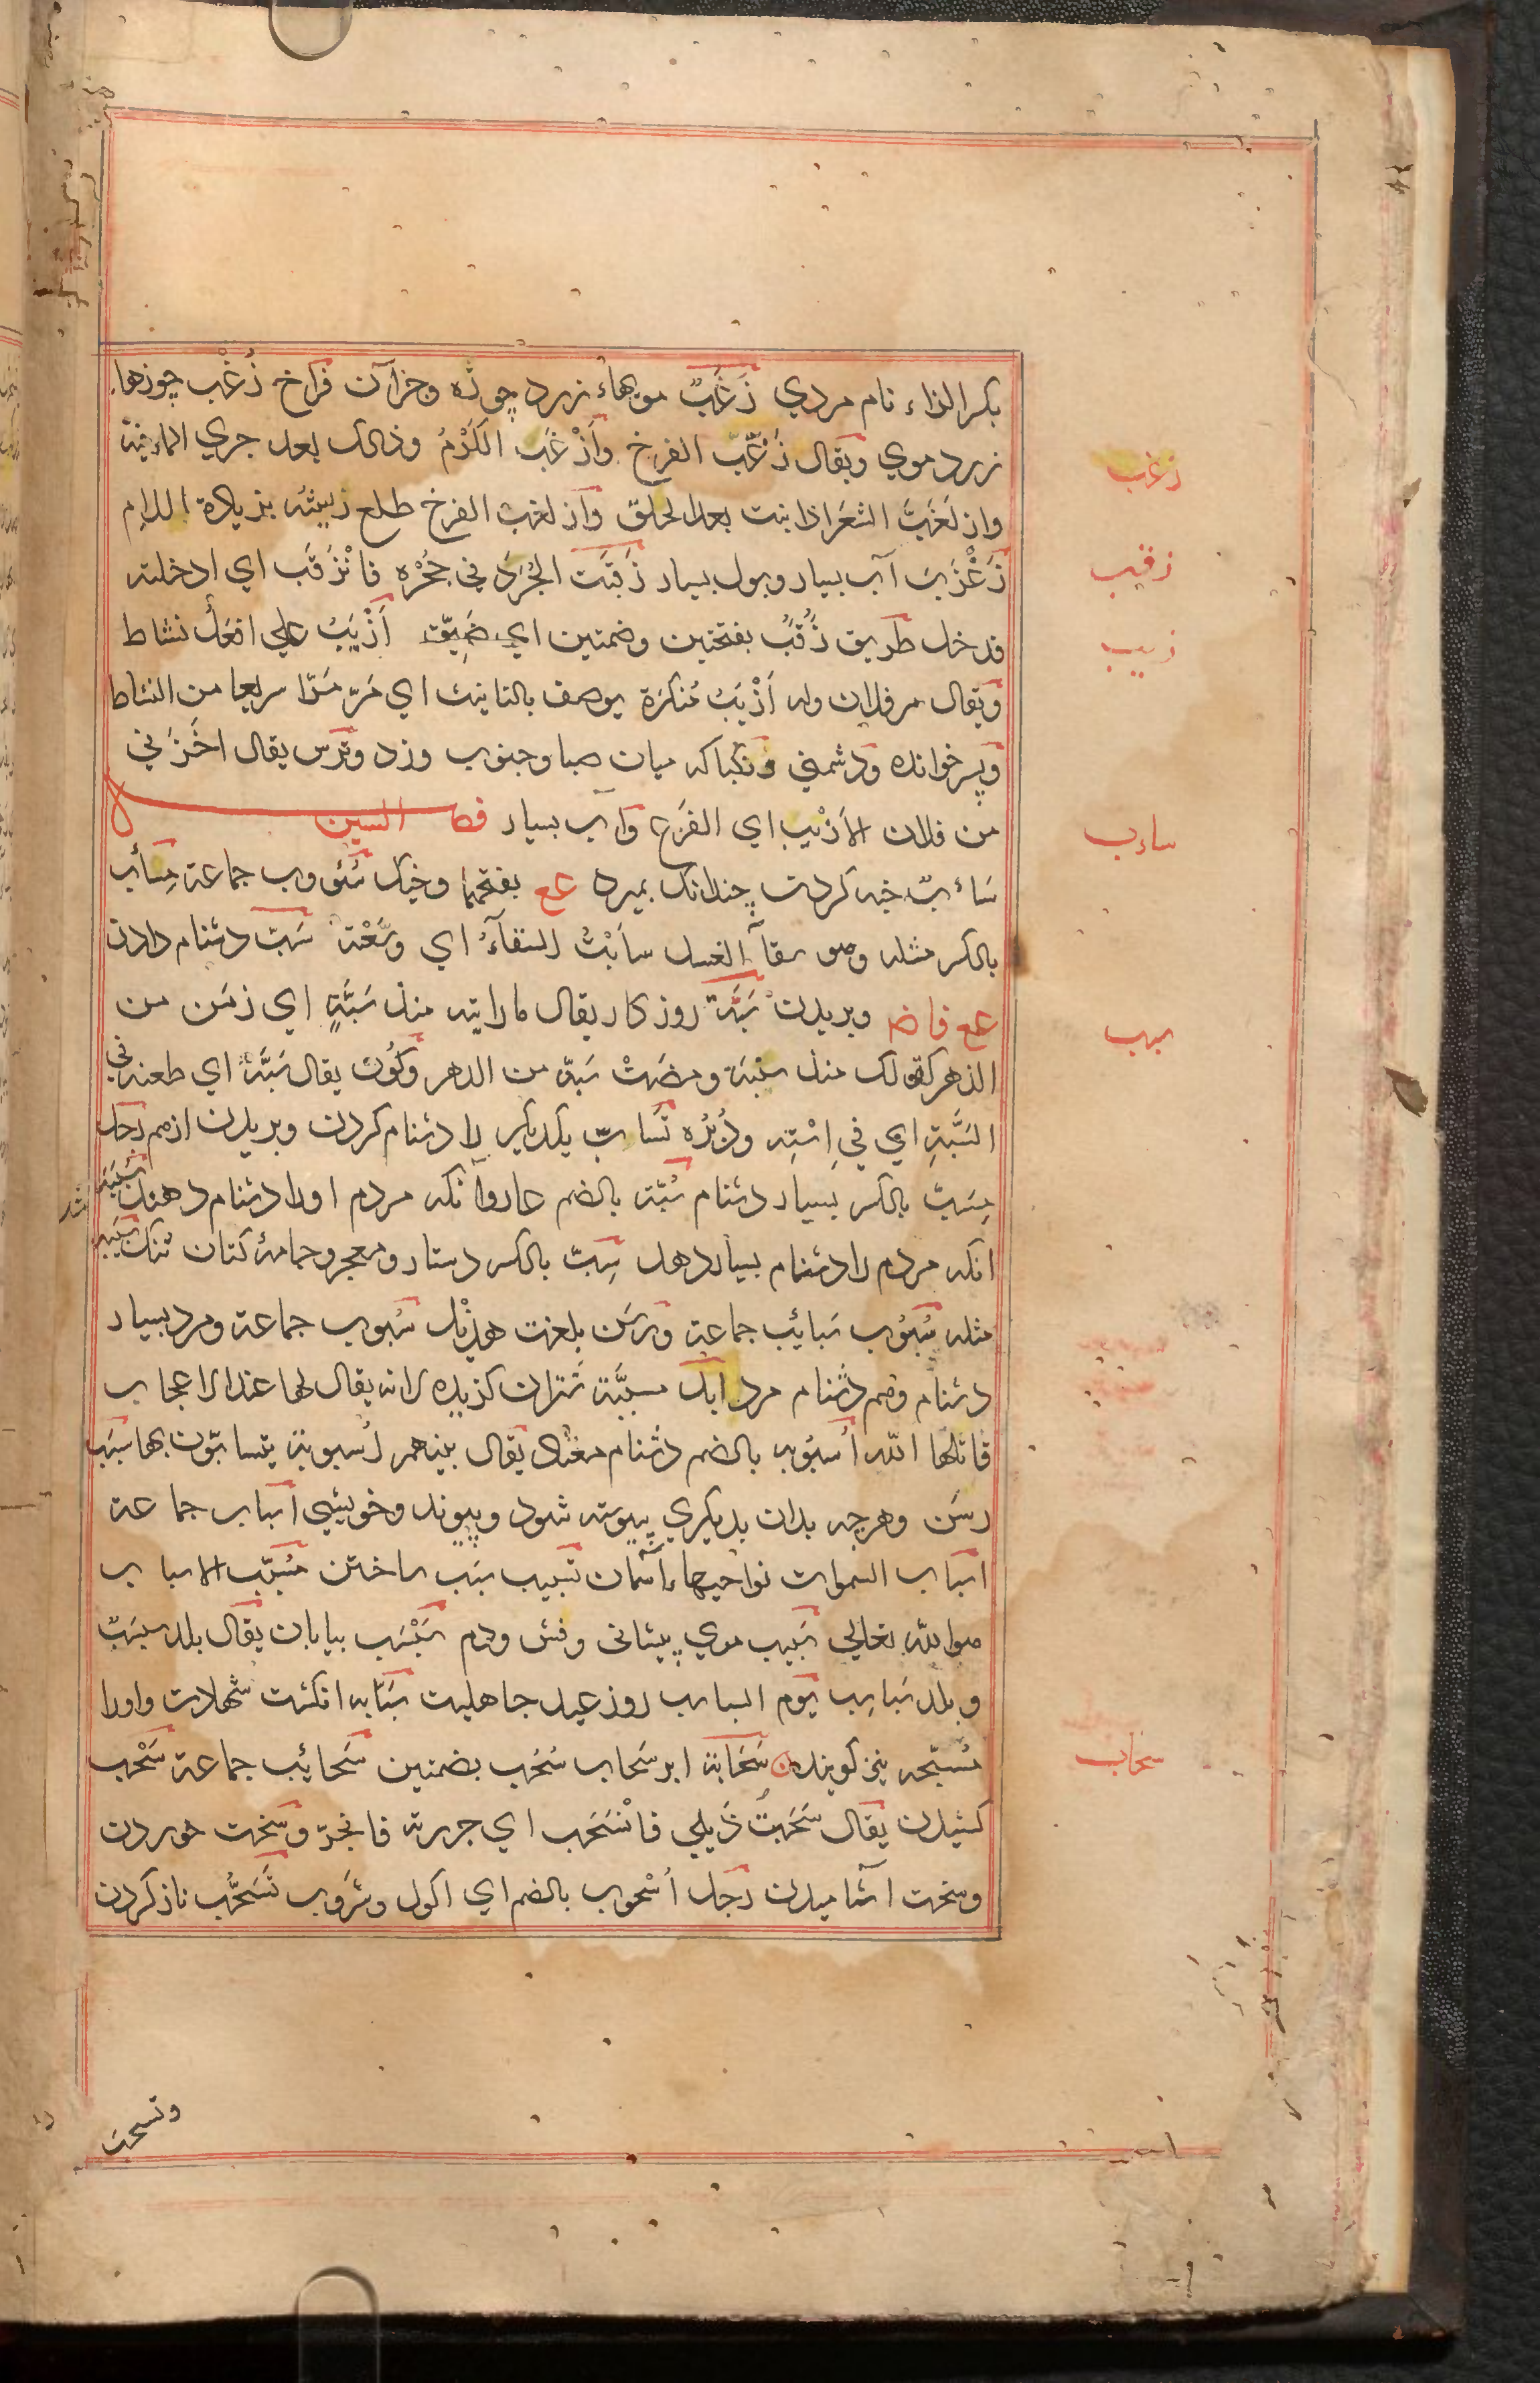 بكسر الزاء نام مردي زَغَبٌ مويهاء زرد چوژه وجز آن فراخ زُغْب چوزها
زرد موي ويقال زَغَّبَ الفرخ وأَزْغَبَ الكَرْمُ وذلك بعد جري الماء فيه
وازلَغَبَّ الشَعَر اذا نبت بعد الحلق وازلغب الفرخ طلع ريشه بزيادة اللام
زَغْرَبٌ آب بسيار وبول بسيار زَقَبْتُ الجُرَذَ في جُحْرِه فانْزَقَبَ اي ادخلته
فدخل طريق زُقُبٌ بفتحتين وضمتين اي ضَيِّق أَزْيَبُ علي افعل نشاط
ويقال مر فلان وله أَزْيَبُ مُنكرَة يوصف بالتانيث اي مَرّ مَرّا سريعا من النشاط
وپسر خوانده ودشمني ونكبا كه ميان صبا وجنوب وزد وترس يقال اخَذَني
من فلان الأزْيَب اي الفَزَع وآب بسيار فصل السين
سَاءبٌ خبه كردن چندانك بميرد عع بفتحهما وخيك سُئووب جماعة مِسأب
بالكسر مثله وهو سقاء العسل سأبْتُ السقآءَ اي وَسَّعْتهُ سَبّ دشنام دادن
عع فاض وبريدن سَبَّة روزكار يقال ما رايته منذ سَبَّةٍ اي زمَن من
الدهر كقولك منذ سنبة ومضَتْ سَبّة من الدهر وكُون يقال سَبَّهُ اي طعنه في
السَّبَّةِ اي في اِسْتِه ودُبُرُه تَسابّ يكديكر را دشنام كردن وبريدن از هم رجل
مِسَبّ بالكسر بسيار دشنام سُبّة بالضم عار وآنكه مردم اورا دشنام دهند سُبَبَة
آنكه مردم را دشنام بسيار دهد سِبّ بالكسر دستار ومعجر وجامهٔ كتان تنك سَبيبَة
مثله سُبُوب سَبائِب جماعة ورسَن بلغت هُذَيْل سُبوب جماعة ومرد بسيار
دشنام وهم دشنام مرد ابل مسبَّبة شتران كزيده لانه يقال لها عند الاعجاب
قاتلها اللّه اُسبُوبه بالضم دشنام مغند يقال بينهم اُسبوبة يتسابّون بها سبَب
رسَن وهرچه بدان بديكري پيوسته شود وپيوند وخويشي اسباب جماعة
اسباب السموات نواحيها آسمان تسبيب سبَب ساختن مُسَبّب الاسباب
هو اللّه تعالي سَبيب موي پيشاني وفش ودم سَبْسَب بيابان يقال بلد سبسَبٌ
وبلد سَباسِب يوم السباسب روز عيد جاهليت سَبّابه انكشت شهادت واورا
مُسَبّحه نيز كويند سَحَابَة ابر سَحاب سُحُب بضمتين سَحائِب جماعة سَحْب
كشيدن يقال سَحَبْتُ ذَيلي فانْسَحَب اي جررته فانجَرّ وسخت خوردن
وسخت آشاميدن رَجل اُسْحوب بالضم اي اكول وشَروب تَسَحُّب ناز كردن
وتسحب
زغب
زقب
زيب
ساءب
سبب
سحاب